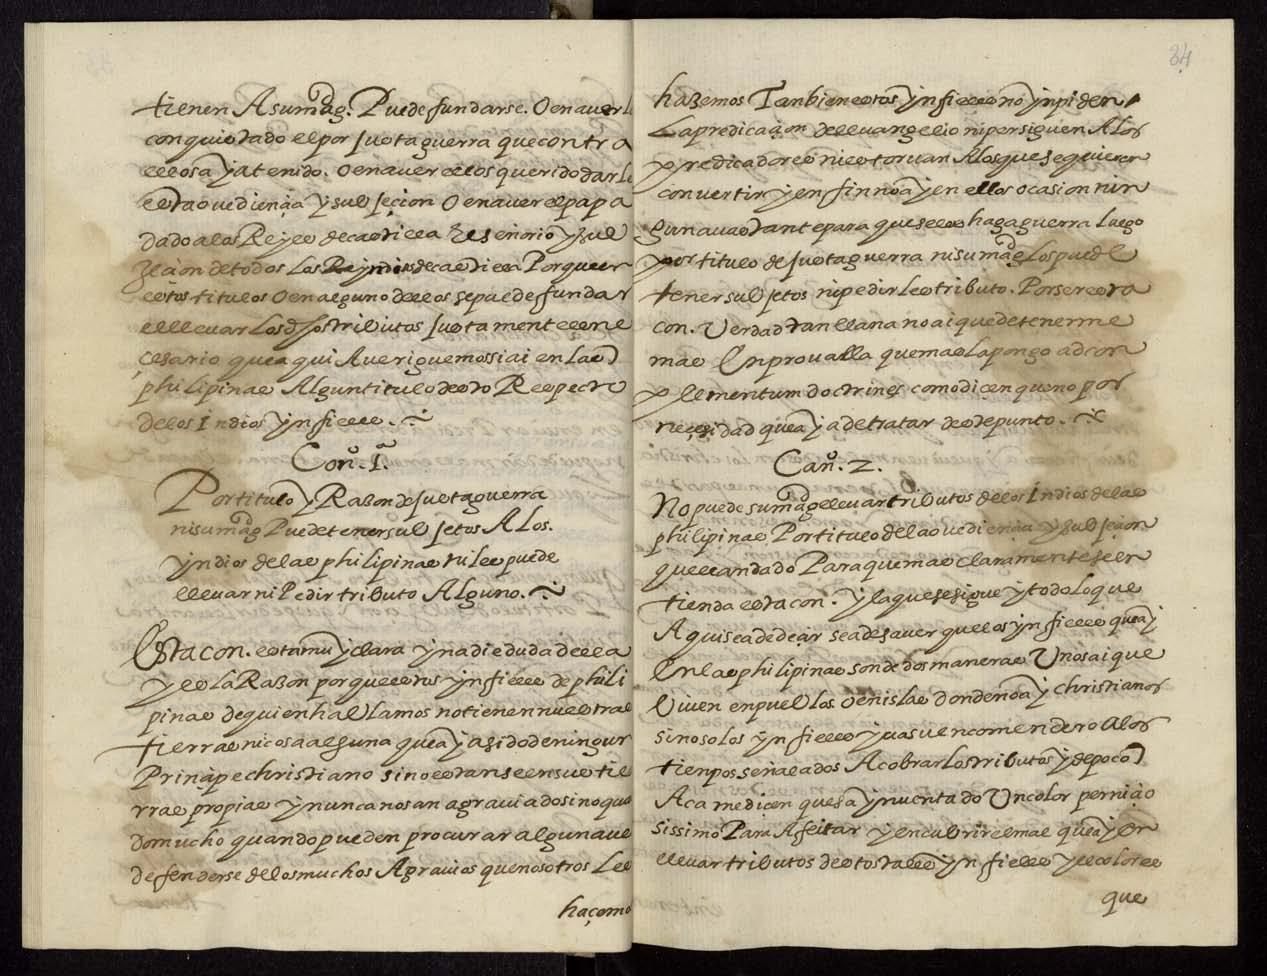 tienen A su mag. Puede fundarse. O en aver
conquistado el por justa guerra que contra
ellos aya tenido. O en aver ellos querido darle
esta ovediençia y subjeçion O en aver el papa
dado a los Reyes de castilla el señorio y sub
jeçion de todos los Reynos de castilla Porque en
estos titulos O en alguno dellos se puede fundar
el llevar los dhos tributos justamente es ne
çesario que aqui Averiguemos si ai en las
philipinas Algun titulo desto Respecto
de los Indios ynfieles.
Con. 1ª.
Por titulo y Razon de justa guerra
ni su mag Puede tener subjetos A los.
yndios de las philipinas ni les puede
llevar ni Pedir tributo Alguno.
Esta con. esta muy clara y nadie duda della
y es la Razon porque estos ynfieles de phili
pinas de quien hablamos no tienen nuestras
tierras ni cosa alguna que aya sido de ningun
Prinçipe christiano sino estanse en sus tie
rras propias y nunca nos an agraviado sino que
do mucho quando pueden procurar alguna ve
defenderse de los muchos Agravios que nosotros Les
haçemo
34
hazemos Tanbien estos ynfieles no ynpiden
La predicaçion del evangelio ni persiguen A los
predicadores ni estorvan A los que se quieren
convertir y en fin no ay en ellos ocasion nin
guna vastante para que se les haga guerra luego
por titulo de justa guerra ni su mag Los puede
tener subjetos ni pedirles tributo. Por ser esta
con. Verdad tan llana no ai que detenerme
mas En provalla que mas La pongo ad con
plementum doctrine como diçen que no por
neçesidad que aya de tratar deste punto.
Con. 2.
No puede su mag llevar tributos de los Indios de las
philipinas Por titulo de la ovediençia y subjeçion
que le an dado Para que mas claramente se en
tienda esta con. y la que se sigue y todo lo que
Aqui se a de deçir se a de saver que los ynfieles que ay
En las philipinas son de dos maneras Unos ai que
Viven en pueblos o en islas donde no ay christianos
sino solos ynfieles y va su encomendero A los
tienpos señalados A cobrar los tributos y de poco
Aca me diçen que se a ynventado Un color perniçio
sissimo Para Afeitar y encubrir el mal que ay en
llevar tributos de estos tales ynfieles y el color es
que